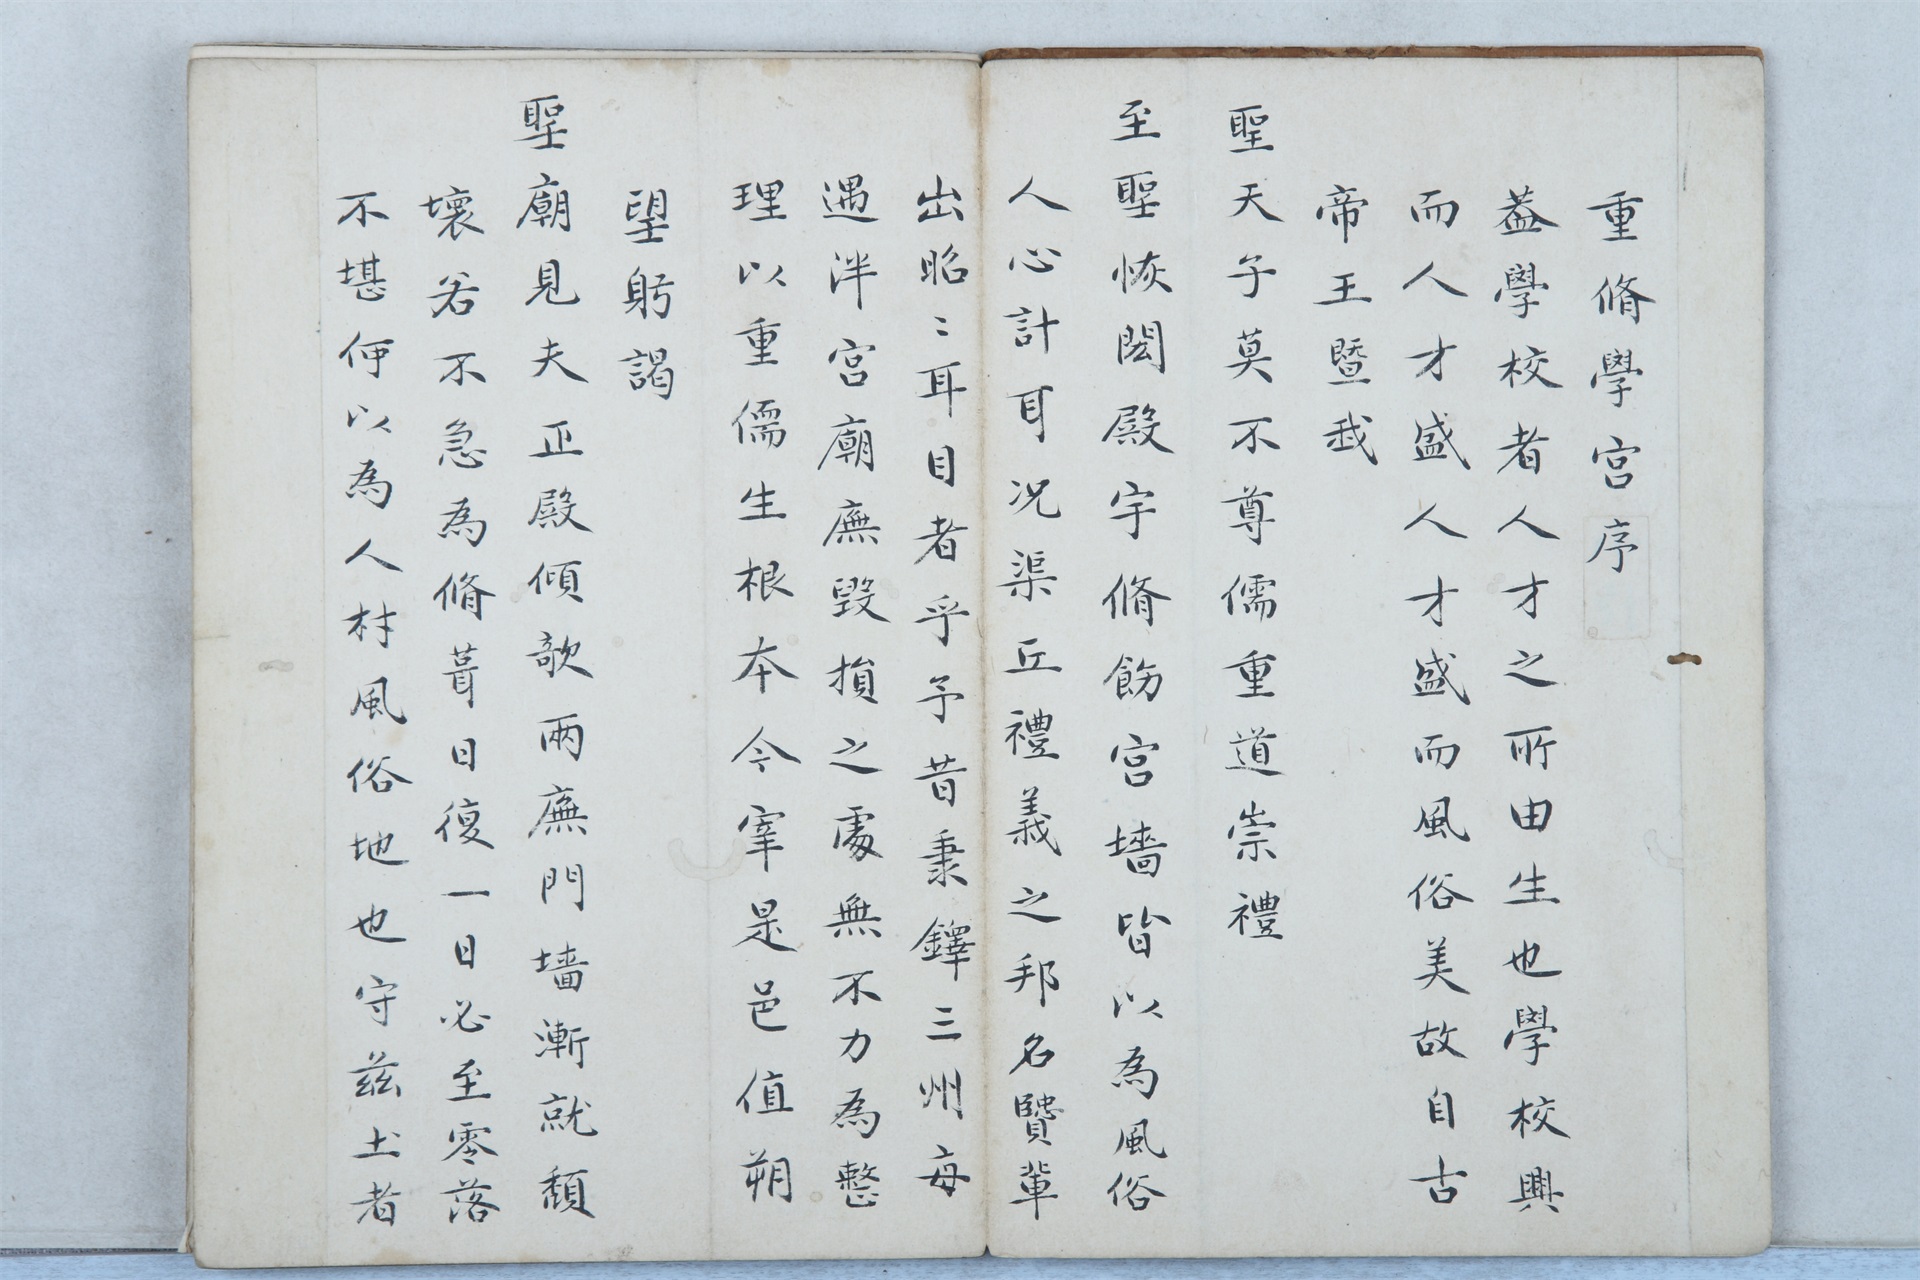 重脩學宮序
葢學校者人才之所由生也學校興
而人才盛人才盛而風俗美故自古
帝王暨我
聖天子莫不尊儒重道崇禮
至聖恢閎殿宇脩飭宮墻皆以為風俗
人心計耳况渠丘禮義之邦名賢輩
出昭〻耳目者乎予昔秉鐸三州每
遇泮宮廟廡毀損之處無不力為整
理以重儒生根本今宰是邑值朔
望躬謁
聖廟見夫正殿傾欹兩廡門墻漸就頹
壞若不急為脩葺日復一日必至零落
不堪何以為人材風俗地也守茲土者